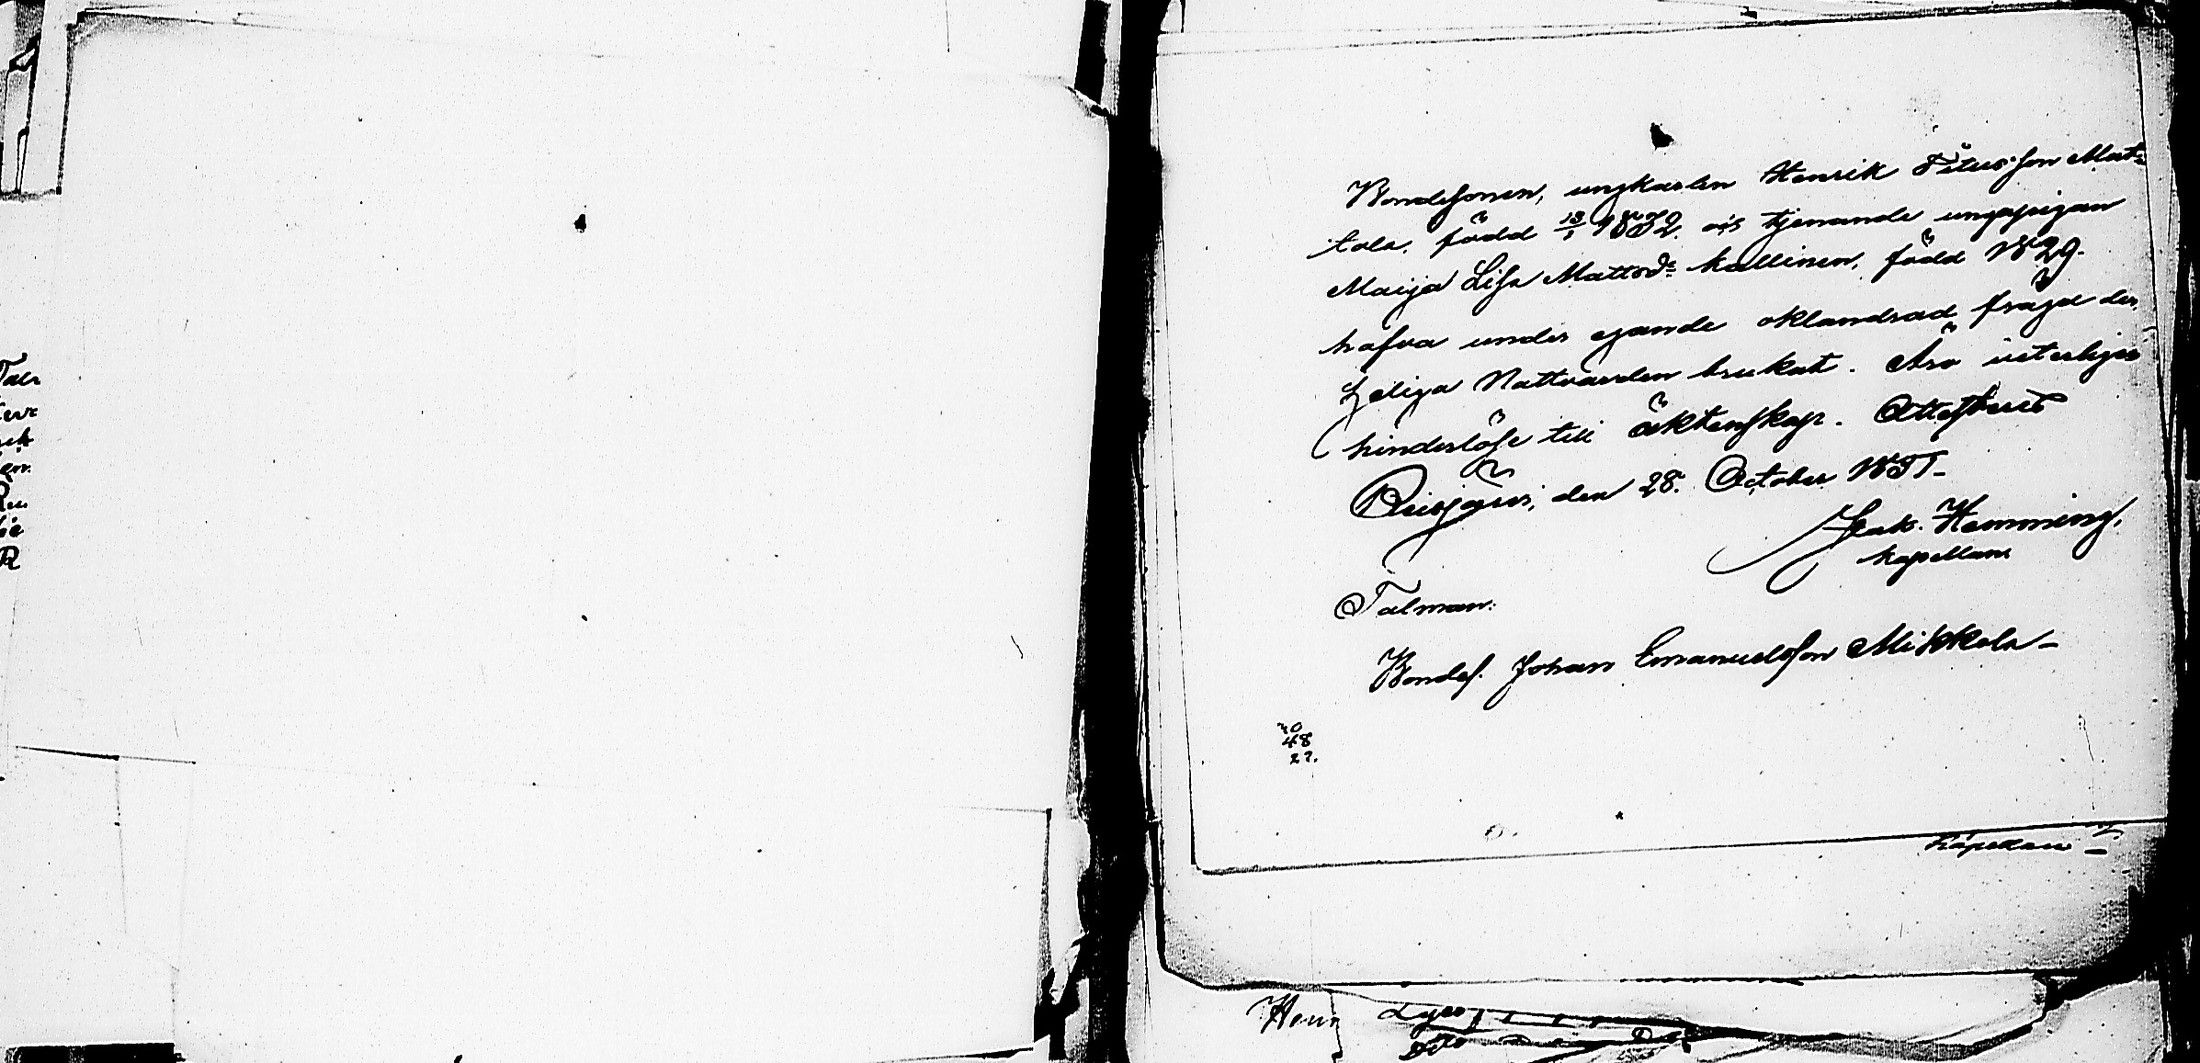 Bondesonen, ungkarlen Henrik Petersson Mat-
tola, född 13/1 1832. o/s tjenande ungapigan
Maija Lisa Mattsdr Kallinen, född 1829.
hafva under egande oklandrad frägd den
Heliga Nattvarden brukat. Äro veterligen
hinderlöse till äktenskap. Attesteras
Reisjärvi, den 28. October 1851-
Isak. Hemming,
Kapellan
Talman:
Bondes. Johan Emanuelsson Mikkola-
48
27.
Kapellan